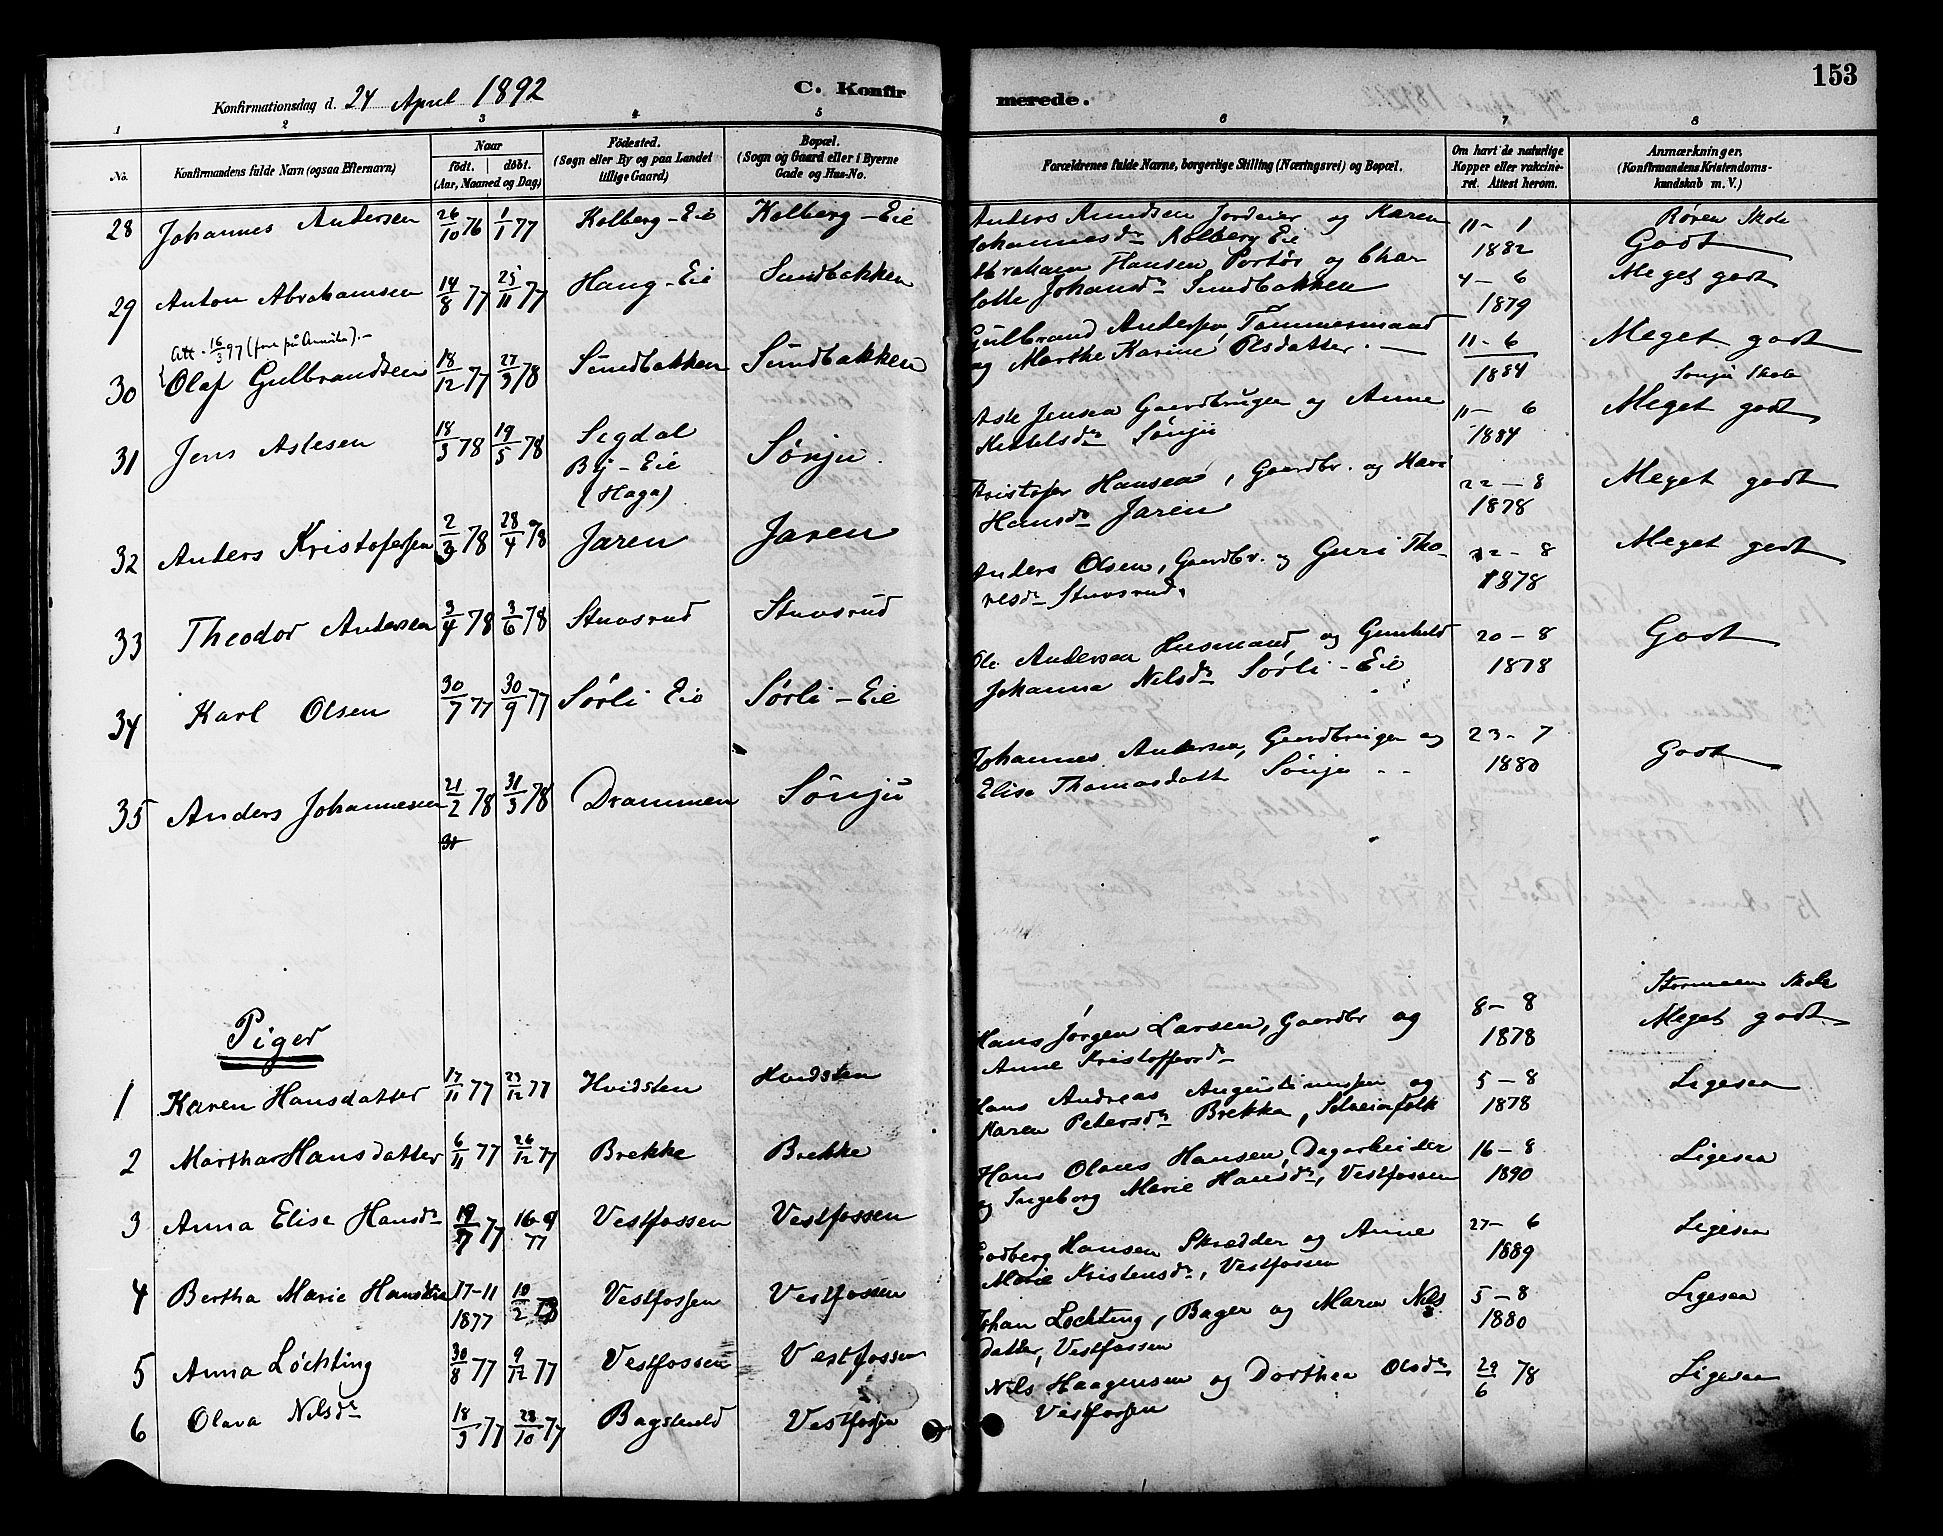 153
Konfirmationsdag d. 24 April 1892 C. Konfirmerede.
1 2 3 4 5 6 7 8
No. Konfirmandens fulde Navn (ogsaa Efternavn) Naar født. døbt. (Aar, Maaned og Dag) Fødested. (Sogn eller By og paa Landet tillige Gaard) Bopæl. (Sogn og Gaard eller i Byerne Gade og Hus-No. Forældrenes fulde Navne, borgerlige Stilling (Næringsvei) og Bopæl. Om havt de naturlige Kopper eller vaccineret. Attest herom. Anmærkninger. (Konfirmandens Kristendomskundskab m. V.)
28 Johannes Andersen 26/10 76 1/1 77 Kolberg-Eie Kolberg-Eie Anders Amundsen Jordeier og Karen Johannesdr Kolberg Eie 11-1 1882 Røren Skole Godt
29 Anton Abrahamsen 14/8 77 25/11 77 Haug-Eie Sundbakken Abraham Hansen Portør og Charlotte Johansdr Sundbakken 4-6 1879 Meget godt
Att. 16/3 97
30 Olaf Gulbrandsen 18/12 77 27/3 78 Sundbakken Sundbakken Gulbrand Andersen, Tømmermand og Marthe Karine Olsdatter. 11-6 1884 Meget godt
31 Jens Aslesen 18/3 78 19/5 78 Sigdal By-Eie (Haga) Sønju. Asle Jensen Gaardbruger og Anne Kittelsdr Sønju 11-6 1884 Sønju Skole Meget godt
32 Anders Kristofersen 2/3 78 28/4 78 Jaren Jaren Kristofer Hansen, Gaardbr. og Hansdr Jaren 22-8 1878 Meget godt
33 Theodor Andersen 3/4 78 3/6 78 Stuvsrud Stuvsrud Anders Olsen, Gaardbr. og Guri Thoresdr Stuvsrud. 22-8 1878 Meget godt
34 Karl Olsen 30/7 77 30/9 77 Sørli Eie Sørli-Eie Ole Andersen Husmand og Gunhild Johanna Nilsdr Sørli-Eie 20-8 1878 Godt
35 Anders Johannesen 21/2 78 31/3 78 Drammen Sønju Johannes Andersen, Gaardbruger og Elise Thomasdatt Sønju 23-7 1880 Godt
31
Piger
1 Karen Hansdatter 17/11 77 23/12 77 Hvidsten Hvidsten Hans Jørgen Larsen, Gaardbr og Anne Kristoffersdr 8-8 1878 Stormoen Skole Meget godt
2 Martha Hansdatter 6/11 77 26/12 77 Brekke Brekke Hans Andreas Augustinussen og Karen Petersdr Brekke, Selveierfolk 5-8 1878 Ligesaa
3 Anna Elise Hansdr 19/7 77 16-9 77 Vestfossen Vestfossen Hans Olaus Hansen, Dagarbeider og Ingeborg Marie Hansdr, Vestfossen 16-8 1890 Ligesaa
4 Bertha Marie 17-11 1877 10/2 78 Vestfossen Vestfossen Hansen Skrædder og Anne Marie Kristensdr, Vestfossen 27-6 1889 Ligesaa
5 Anna Løchting 30/8 77 9/12 77 Vestfossen Vestfossen Johan Løchting, Bager og Maren Nilsdatter, Vestfossen 5-8 1880 Ligesaa
6 Olava Nilsdr 18/9 77 28/10 77 Vestfossen Nils Haagensen og Dorthea Olsdr Vestfossen 29/6 78 Ligesaa